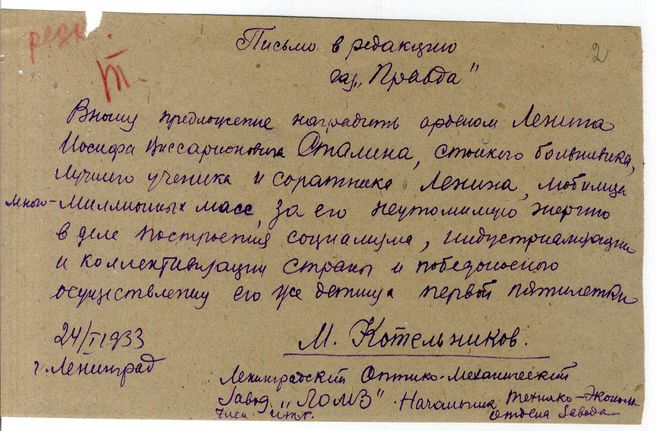 резк.
Т.
2
Письмо в редакцию
газ. „Правда"
Вношу предложение наградить орденом Ленина
Иосифа Виссарионовича Сталина, стойкого большевика,
лучшего ученика и соратника Ленина, любимца
много-миллионных масс, за его неутомимую энергию
в деле построения социализма, индустриализации
и коллективизации страны и победоносного
осуществления его же детища первой пятилетки
24/I 1933
г. Ленинград
М. Котельников.
Ленинградский Оптико-Механический
Завод „ЛОМЗ" Начальник Технико-Эконом.
отдела завода
Член ИТР.